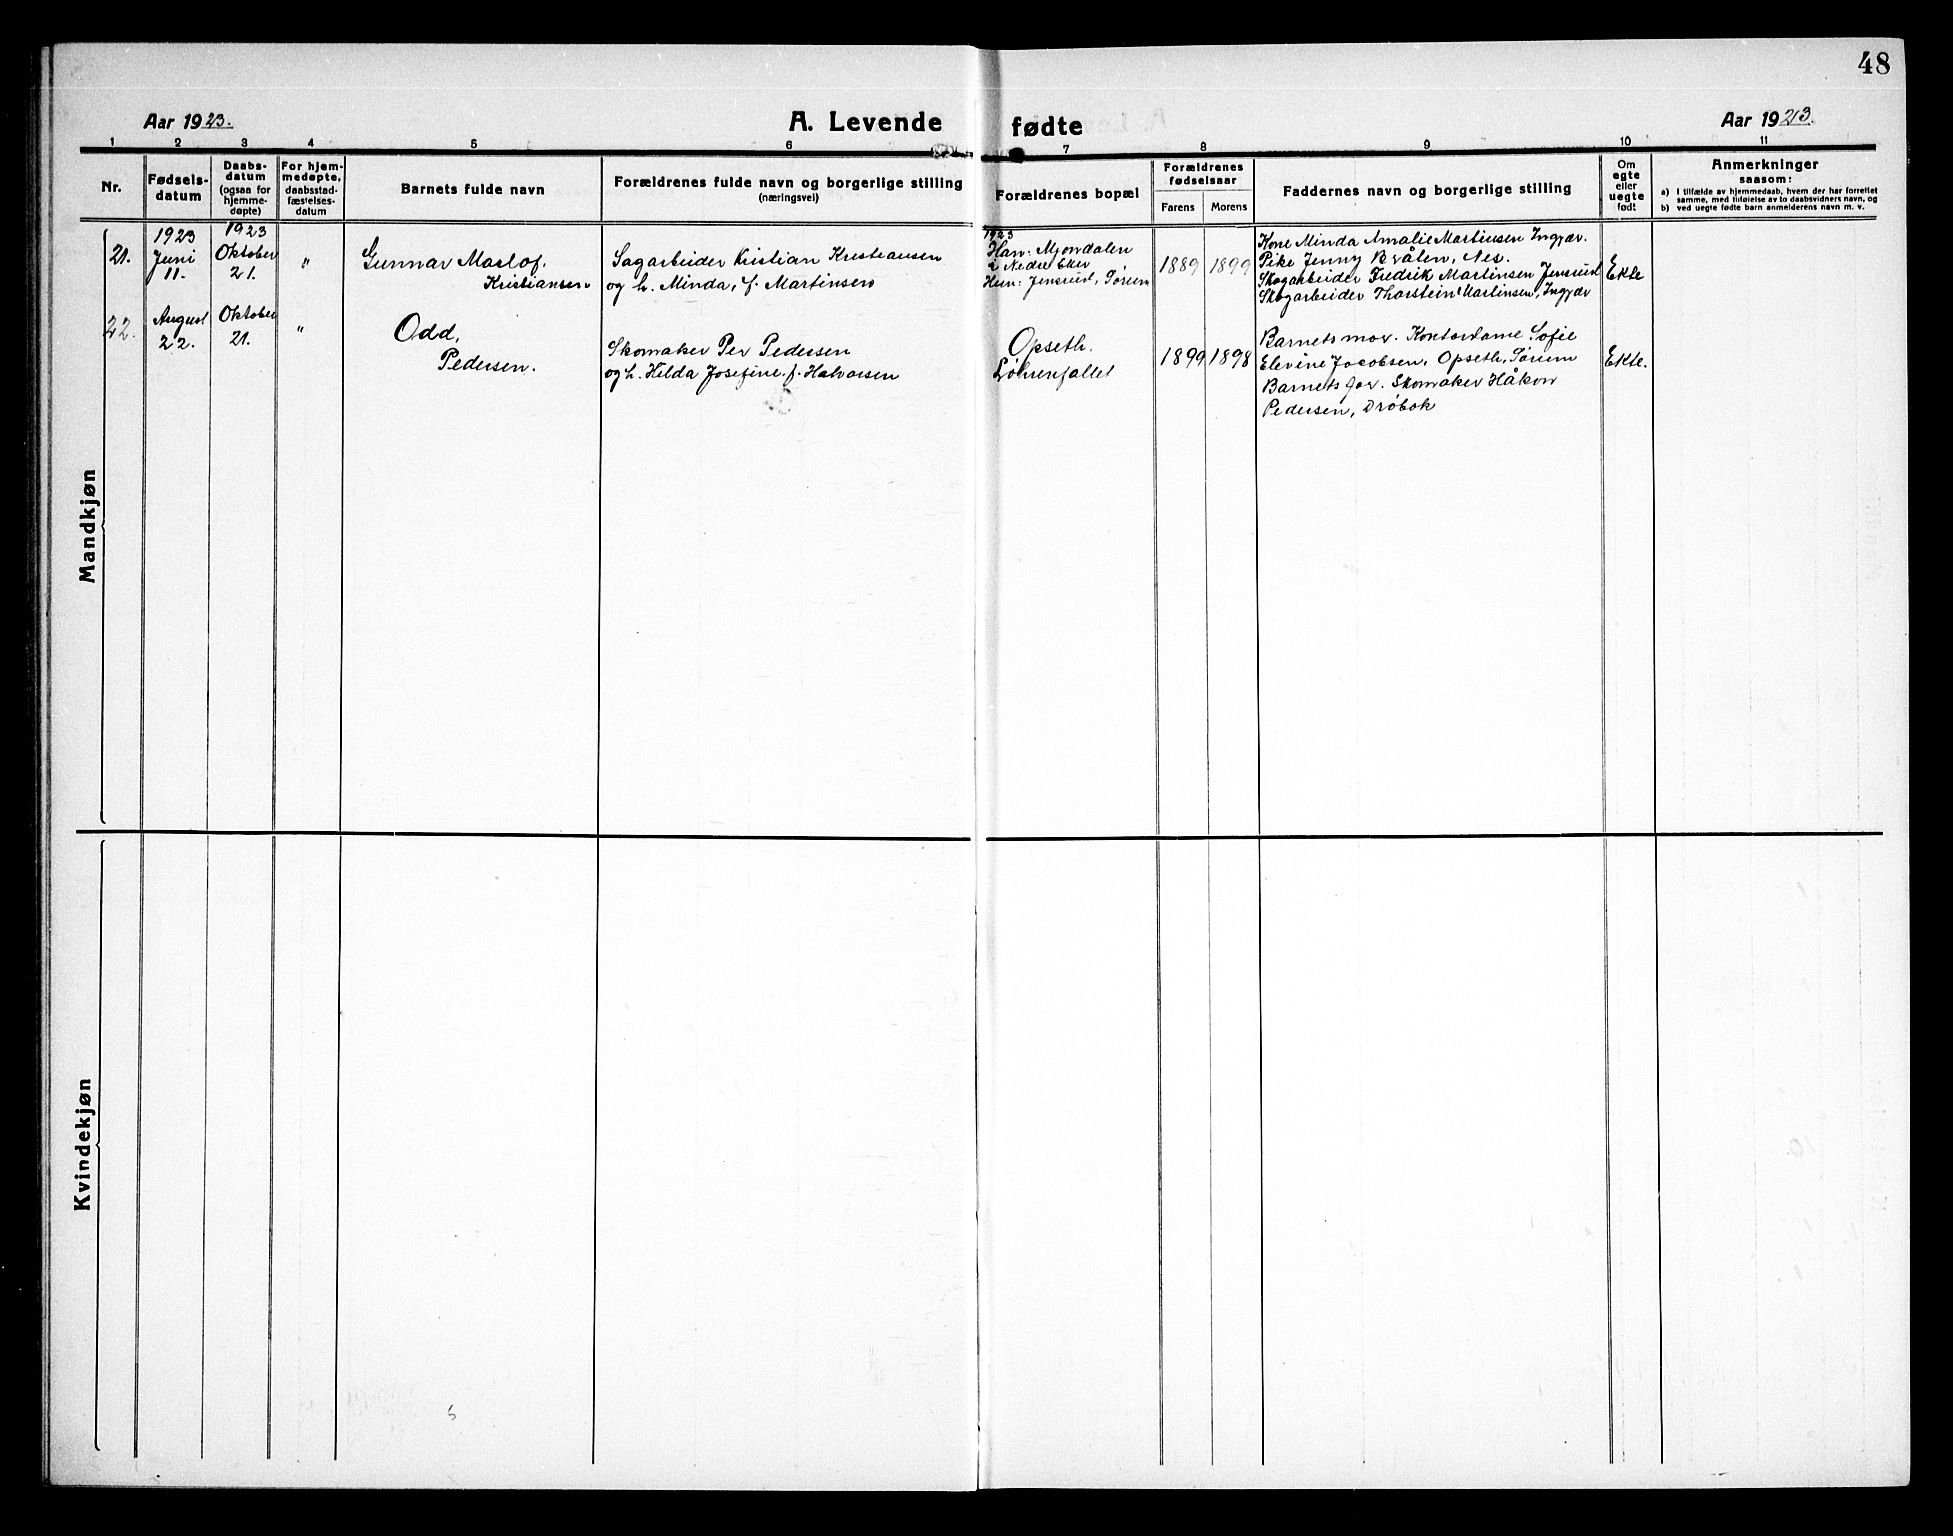 48
Aar 1923.
A. Levende fødte
Aar 1923.
1 2 3 4 5 6 7 8 9 10 11
Nr.
Fødsels-
datum
Daabs-
datum
(ogsaa for
hjemme-
døpte)
For hjem-
medøpte,
daabsstad-
fæstelses-
datum
Barnets fulde navn
Forældrenes fulde navn og borgerlige stilling
(næringsvei)
Forældrenes bopæl
Forældrenes
fødselsaar
Farens Morens
Faddernes navn og borgerlige stilling
Om
egte
eller
uegte
født
Anmerkninger
saasom:
a) I tilfælde av hjemmedaab, hvem der har forrettet
samme, med tilføielse av to daabsvidners navn, og
b) ved uegte fødte barn anmelderens navn m. v.
Mandkjøn
21.
1923
Juni
11.
1923
Oktober
21.
"
Gunnar
Kristiansen
Sagarbeider Kristian Kristiansen
og h. Minda, f. Martinsen
1923
Han: Mjondalen
i Nedre Eker
Hun: Jensrud, Sørum
1889 1899
Kone Minda Amalie Martinsen Ingjær.
Pike Jenny Bråten, Nes.
Skogarbeider Fredrik Martinsen Jensrud
Skogarbeider Thorstein Martinsen, Ingjær
Ekte
22.
August
22.
Oktober
21.
"
Odd,
Pedersen.
Skomaker Per Pedersen
og h. Hilda Josefine f. Halvorsen
Opseth.
Løhrenfallet
1899 1898
Barnets mor. Kontordame Sofie
Elevine Jacobsen, Opseth, Sørum
Barnets far. Skomaker Håkon
Pedersen, Drøbok
Ekte.
Kvindekjøn